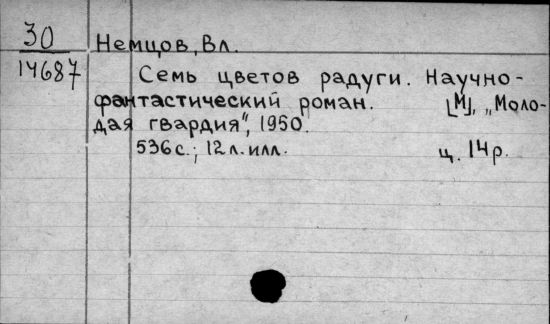 30
14687
Немцов, Вл.
Семь цветов радуги. Научно-
фантастический роман. [М], „Моло-
дая гвардия", 1950.
536 с.; 12 л. илл. ц. 14 р.